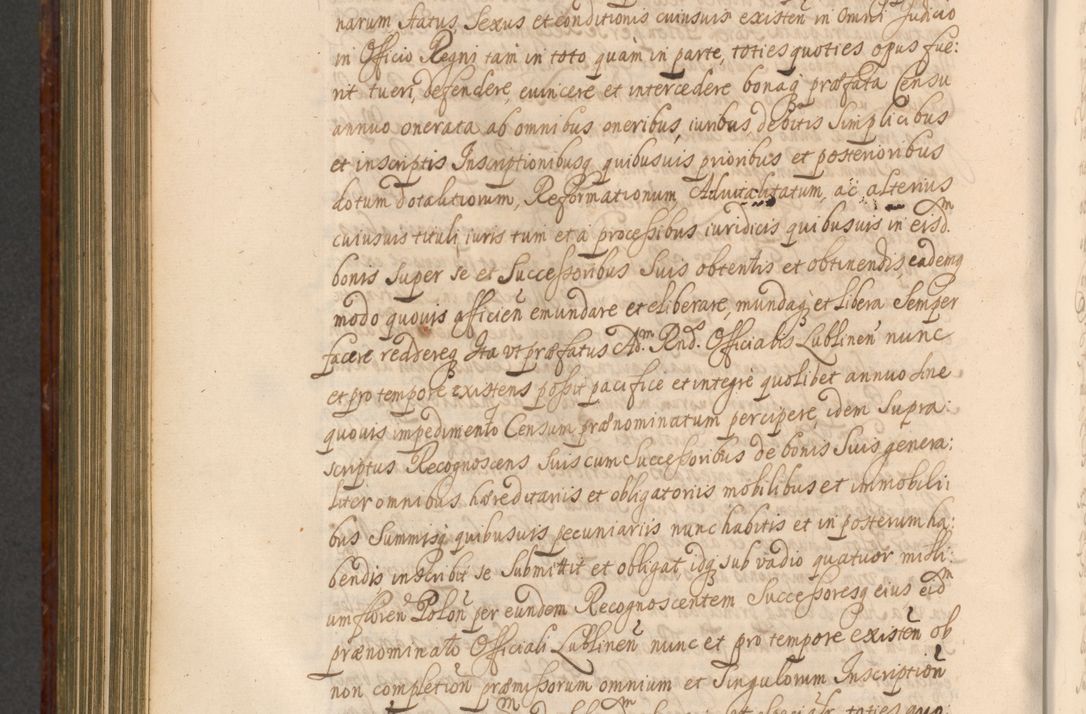 narum status Sexus et conditionis cuiusuis existen̄ in Omni Judicio
in Officio Regni tam in toto quam in parte, toties quoties opus fue:
rit tueri, defendere, euincere et intercedere bonaq præfata Censu
annuo onerata ab omnibus oneribus, iuribus, debitis Simplicibus
et inscriptis Inscriptionibusq quibusuis prioribus et posterioribus
dotum Dotalitiorum, Reformationum Aduitalitatum, ac alterius
cuiusuis tituli iuris tum et a processibus iuridicis quibusuis in eisd.m
bonis super se et Successoribus suis obtentis et obtinendis, eademq
modo quouis afficien̄ emundare et eliberare, mundaq et libera Semper
facere reddereq Ita vt præfatus Ad.m Rnd.s Officialis Lublinen̄ nunc
et pro tempore existens possit pacifice et integre quolibet annuo sine
quouis impedimento Censum prænominatum percipere, idem Supra:
scriptus Recognoscens suis cum Successoribus de bonis Suis genera:
liter omnibus hæreditariis et obligatoriis mobilibus et immobili:
bus Summisq quibusuis pecuniariis nunc habitis et in posterum ha:
bendis inscribit se submittit et obligat, idq sub vadio quatuor milli:
um floren̄ Polon̄ per eundem Recognoscentem Successoresq eius eid.m
prænominato Officiali Lublinen̄ nunc et pro tempore existen̄ ob
non completion̄ præmissorum omnium et Singulorum Inscription̄
toties quo: